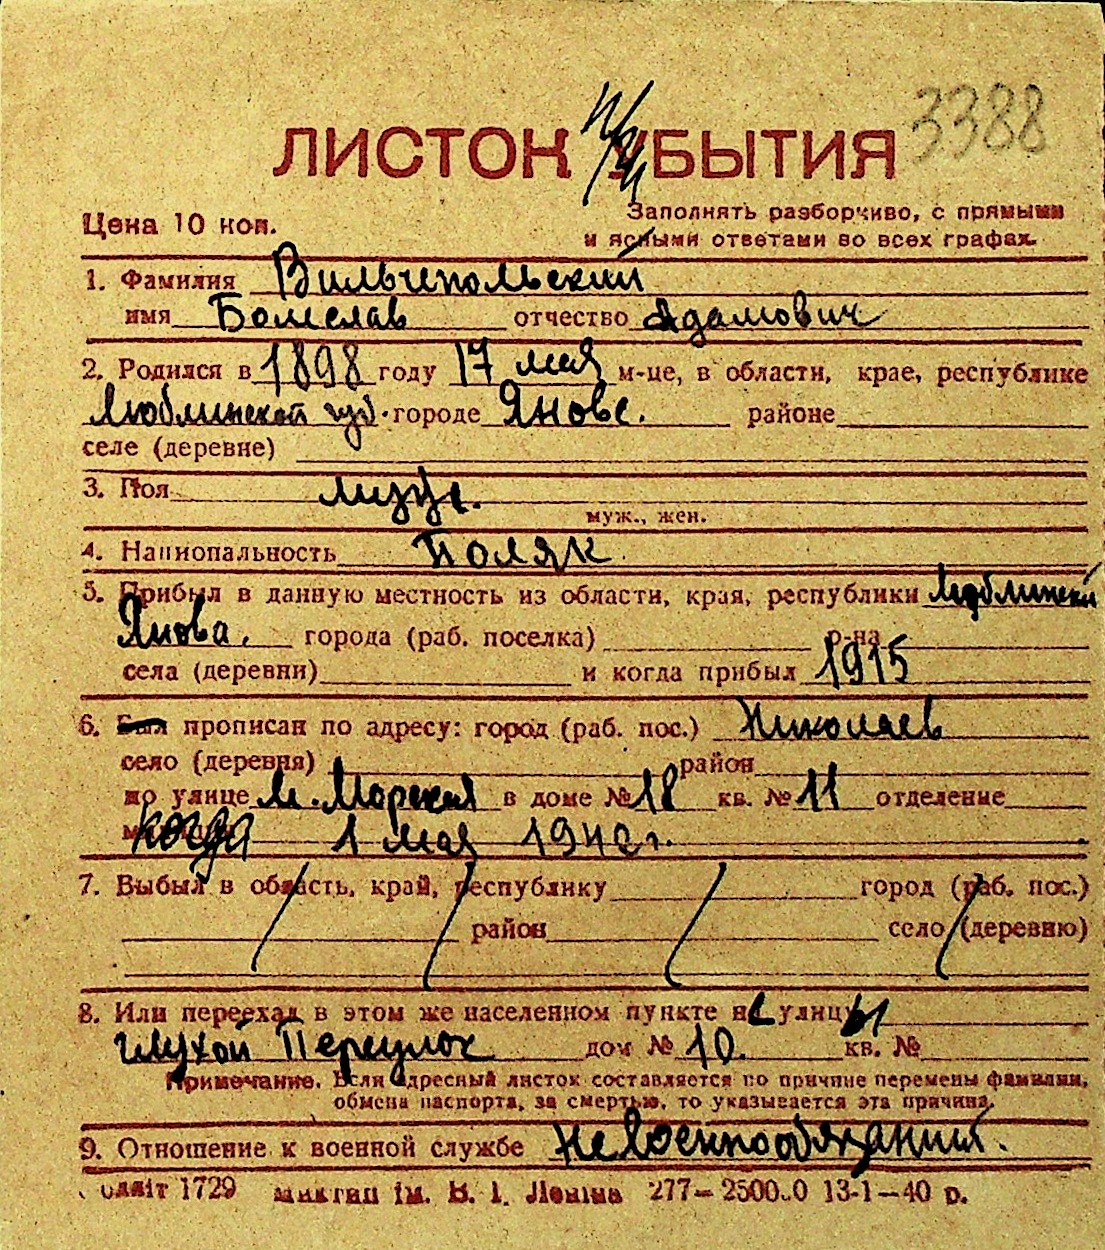 3388
ЛИСТОК УБЫТИЯ
Цена 10 коп.
Заполнять разборчиво, с прямыми
и ясными ответами во всех графах.
1. Фамилия Вильчепольский
имя Болеслав отчество Адамович
2. Родился в 1898 году 17 мая м-це, в области, крае, республике
Люблинской губ. городе Янове. районе
селе (деревне)
3. Пол мужс.
муж., жен.
4. Национальность Поляк
5. Прибыл в данную местность из области, края, республики Люблинской
Янова. города (раб. поселка) р-на
села (деревни) и когда прибыл 1915
6. Был прописан по адресу: город (раб. пос.) Николаев
село (деревня) район
по улице М. Морская в доме № 18 кв. № 11 отделение
когда 1 мая 1940 г.
7. Выбыл в область, край, республику город (раб. пос.)
район село (деревню)
8. Или переехал в этом же населенном пункте с улицы
Глухой Переулок дом № 10. кв. №
Примечание. Если адресный листок составляется по причине перемены фамилии,
обмена паспорта, за смертью, то указывается эта причина.
9. Отношение к военной службе Невоеннообязанный.
1729 ім. В. І. Леніна 277— 13-1—40 р.